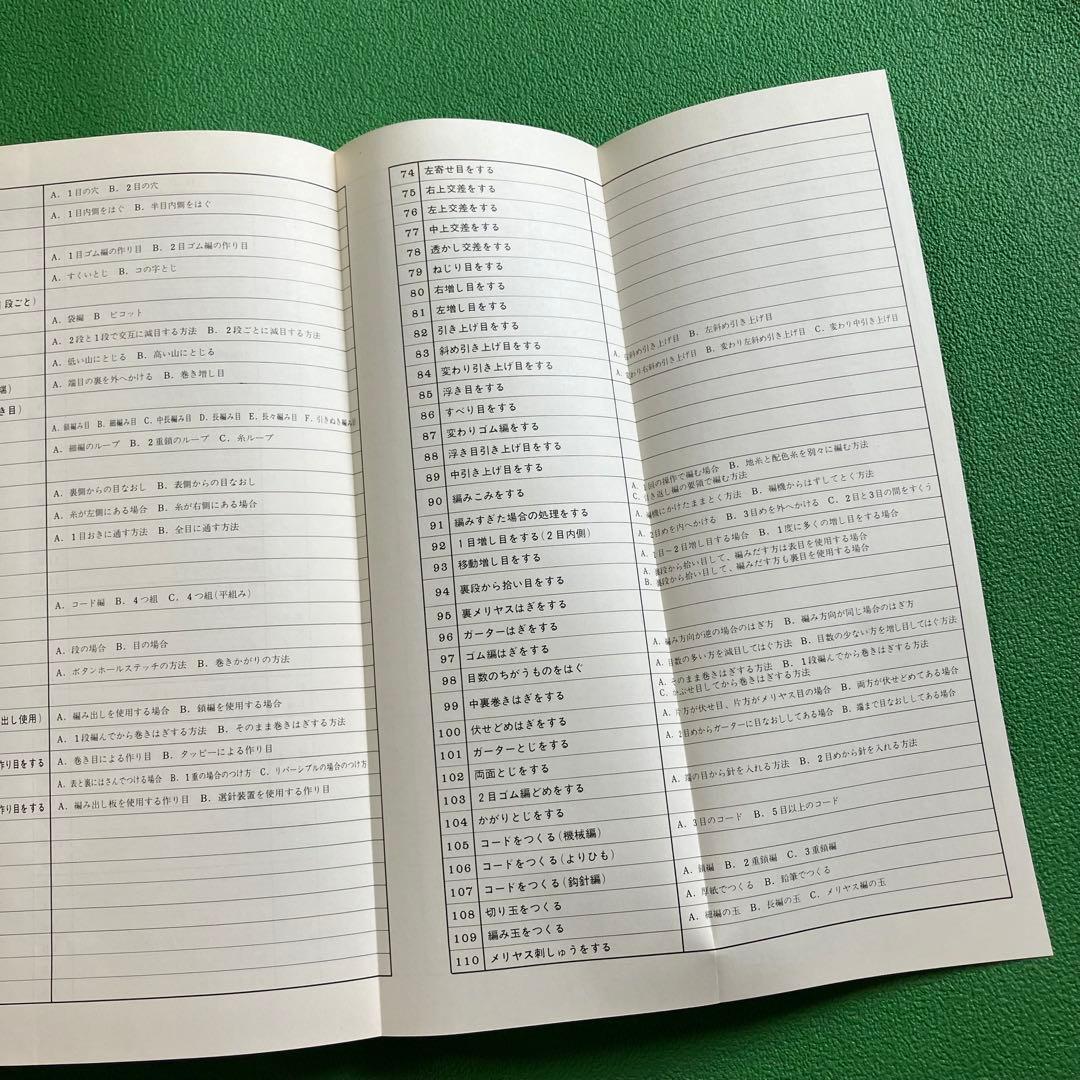 A. 1目の穴 B. 2目の穴
A. 1目内側をはぐ B. 半目内側をはぐ
A. 1目ゴム編の作り目 B. 2目ゴム編の作り目
A. すくいとじ B. コの字とじ
段ごと)
A. 袋編 B ピコット
A. 2段と1段で交互に減目する方法 B. 2段ごとに減目する方法
A. 低い山にとじる B. 高い山にとじる
端) A. 端目の裏を外へかける B. 巻き増し目
き目)
A. 鎖編み目 B. 細編み目 C. 中長編み目 D. 長編み目 E. 長々編み目 F. 引きぬき編み目
A. 細編のループ B. 2重鎖のループ C. 糸ループ
A. 裏側からの目なおし B. 表側からの目なおし
A. 糸が左側にある場合 B. 糸が右側にある場合
A. 1目おきに通す方法 B. 全目に通す方法
A. コード編 B. 4つ組 C. 4つ組(平組み)
A. 段の場合 B. 目の場合
A. ボタンホールステッチの方法 B. 巻きかがりの方法
出し使用) A. 編み出しを使用する場合 B. 鎖編を使用する場合
A. 1段編んでから巻きはぎする方法 B. そのまま巻きはぎする方法
作り目をする A. 巻き目による作り目 B. タッピーによる作り目
A. 表と裏にはさんでつける場合 B. 1重の場合のつけ方 C. リバーシブルの場合のつけ方
作り目をする A. 編み出し板を使用する作り目 B. 選針装置を使用する作り目
74 左寄せ目をする
75 右上交差をする
76 左上交差をする
77 中上交差をする
78 透かし交差をする
79 ねじり目をする
80 右増し目をする
81 左増し目をする
82 引き上げ目をする
83 斜め引き上げ目をする A. 右斜め引き上げ目 B. 左斜め引き上げ目
84 変わり引き上げ目をする A. 変わり右斜め引き上げ目 B. 変わり左斜め引き上げ目 C. 変わり中引き上げ目
85 浮き目をする
86 すべり目をする
87 変わりゴム編をする
88 浮き目引き上げ目をする
89 中引き上げ目をする
90 編みこみをする A. 1回の操作で編む場合 B. 地糸と配色糸を別々に編む方法
C. 引き返し編の要領で編む方法
91 編みすぎた場合の処理をする A. 編機にかけたままとく方法 B. 編機からはずしてとく方法
92 1目増し目をする(2目内側) A. 2目めを内へかける B. 3目めを外へかける C. 2目と3目の間をすくう
93 移動増し目をする A. 1目〜2目増し目する場合 B. 1度に多くの増し目をする場合
94 裏段から拾い目をする A. 裏段から拾い目して、編みだす方は表目を使用する場合
B. 裏段から拾い目して、編みだす方も裏目を使用する場合
95 裏メリヤスはぎをする
96 ガーターはぎをする
97 ゴム編はぎをする A. 編み方向が逆の場合のはぎ方 B. 編み方向が同じ場合のはぎ方
98 目数のちがうものをはぐ A. 目数の多い方を減目してはぐ方法 B. 目数の少ない方を増し目してはぐ方法
99 中裏巻きはぎをする A. そのまま巻きはぎする方法 B. 1段編んでから巻きはぎする方法
C. かぶせ目してから巻きはぎする方法
100 伏せどめはぎをする A. 片方が伏せ目、片方がメリヤス目の場合 B. 両方が伏せどめてある場合
101 ガーターとじをする A. 2目めからガーターに目なおししてある場合 B. 端まで目なおししてある場合
102 両面とじをする
103 2目ゴム編どめをする A. 端の目から針を入れる方法 B. 2目めから針を入れる方法
104 かがりとじをする
105 コードをつくる(機械編) A. 3目のコード B. 5目以上のコード
106 コードをつくる(よりひも)
107 コードをつくる(鈎針編) A. 鎖編 B. 2重鎖編 C. 3重鎖編
108 切り玉をつくる A. 厚紙でつくる B. 鉛筆でつくる
109 編み玉をつくる A. 細編の玉 B. 長編の玉 C. メリヤス編の玉
110 メリヤス刺しゅうをする